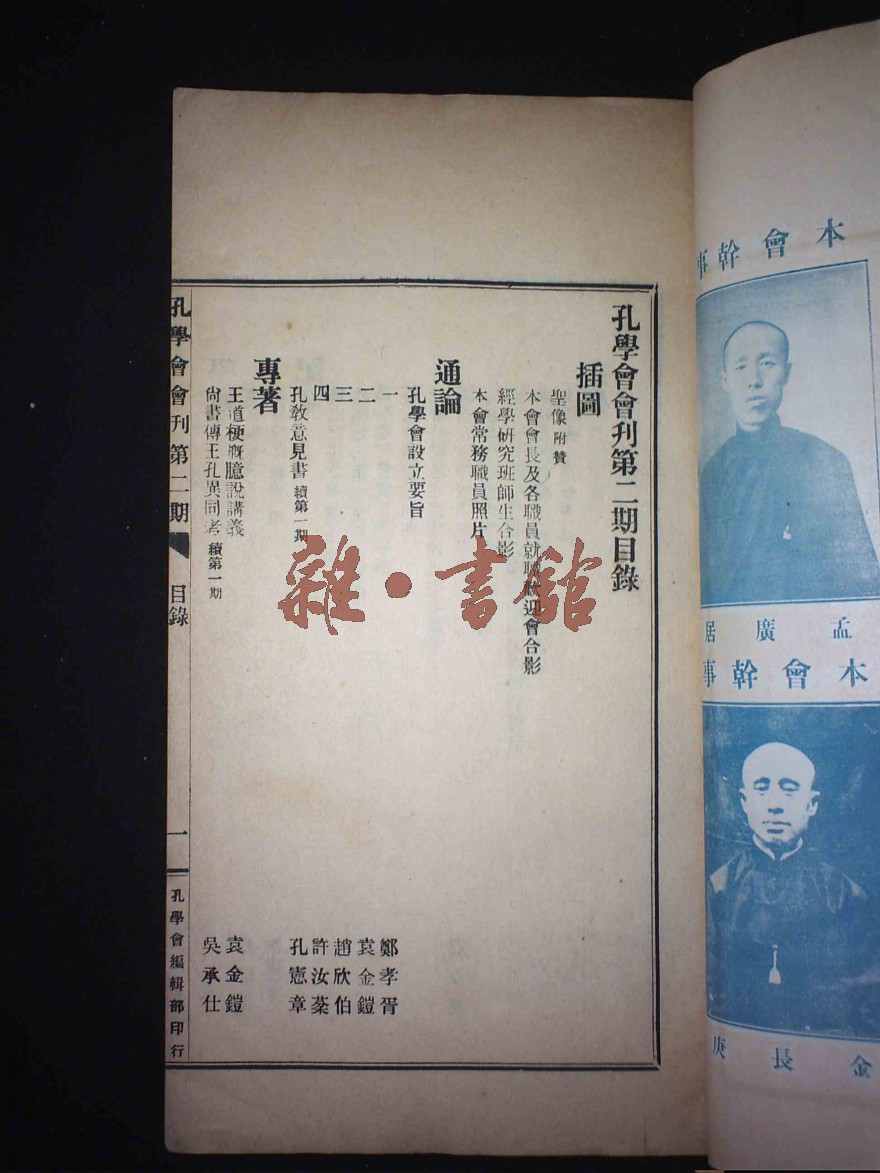 本會幹事
孟廣居
本會幹事
金長庚
孔學會會刊第二期目錄
插圖
聖像 附贊
本會會長及各職員就職歡迎會合影
經學研究班師生合影
本會常務職員照片
通論
孔學會設立要旨
一 鄭孝胥
二 袁金鎧
三 趙欣伯
四 許汝棻
孔敎意見書 續第一期 孔憲章
專著
王道梗槪臆說講義 袁金鎧
尙書傳王孔異同考 續第一期 吳承仕
孔學會會刊第二期 目錄 一 孔學會編輯部印行
雜·書館